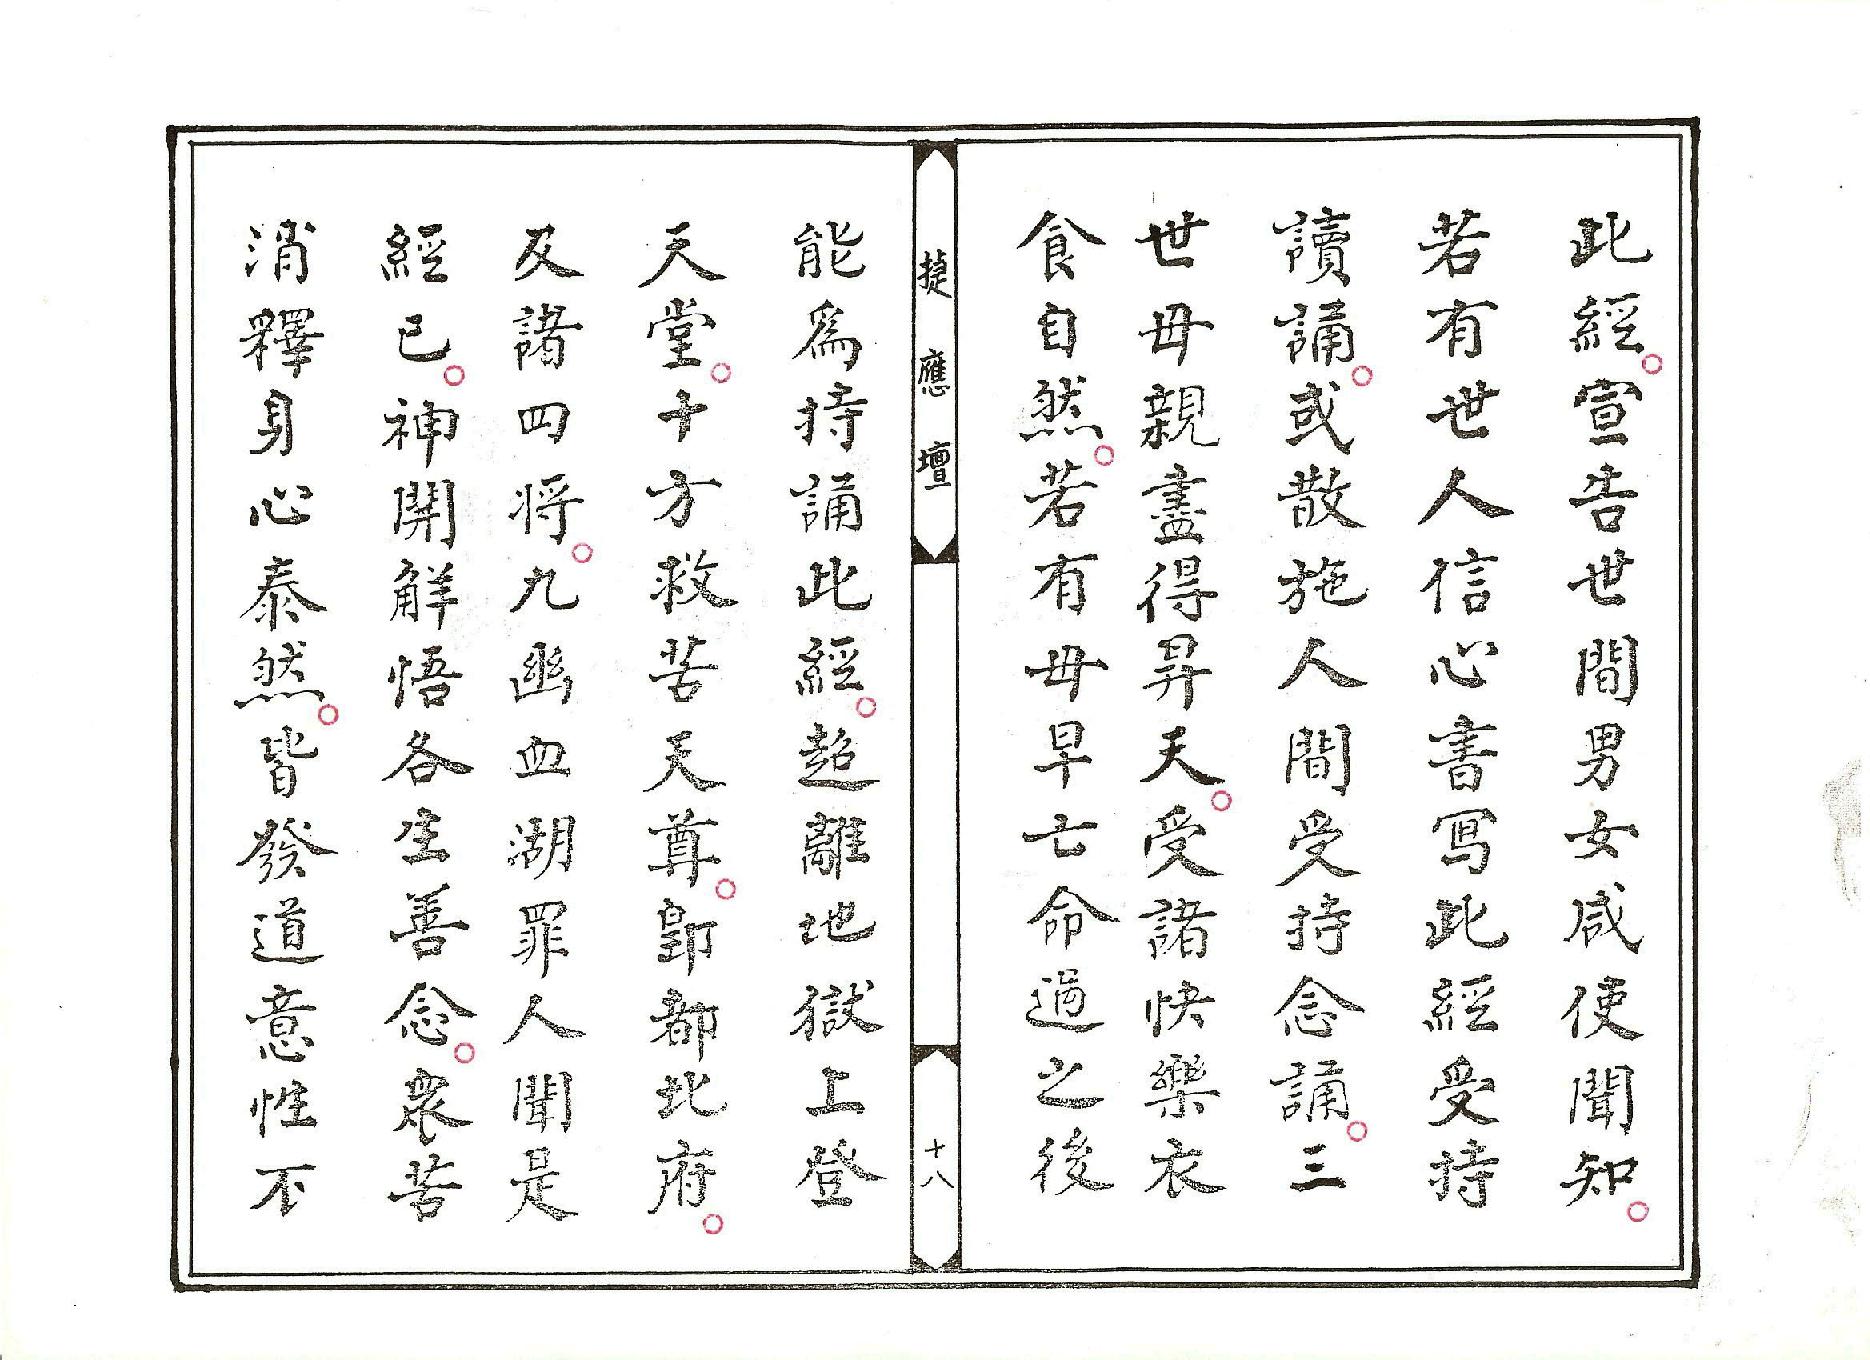 此經。宣告世間男女咸使聞知。
若有世人信心書寫此經受持
讀誦。或散施人間受持念誦。三
世毋親盡得昇天。受諸快樂衣
食自然。若有毋早亡命過之後
捷應壇
十八
能為持誦此經。超離地獄上登
天堂。十方救苦天尊。酆都北府。
及諸四将。九幽血湖罪人聞是
經已。神開解悟各生善念。衆苦
消釋身心泰然。皆發道意性不